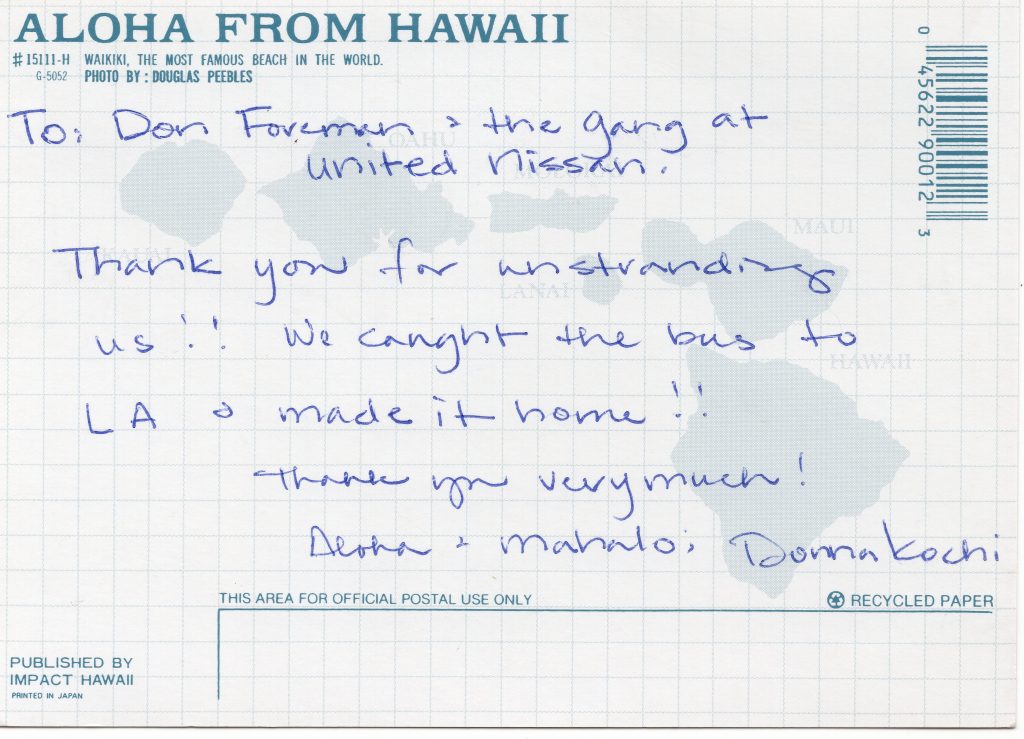 ALOHA FROM HAWAII
#15111-H WAIKIKI, THE MOST FAMOUS BEACH IN THE WORLD.
G-5052 PHOTO BY: DOUGLAS PEEBLES
0 45622 90012 3
To: Don Foreman & the gang at
united Nissan.
OAHU
MAUI
LANAI
HAWAII
Thank you for unstranding
us!! We caught the bus to
LA & made it home!!
Thank you very much!
Aloha & mahalo, Donna Kochi
THIS AREA FOR OFFICIAL POSTAL USE ONLY
RECYCLED PAPER
PUBLISHED BY
IMPACT HAWAII
PRINTED IN JAPAN